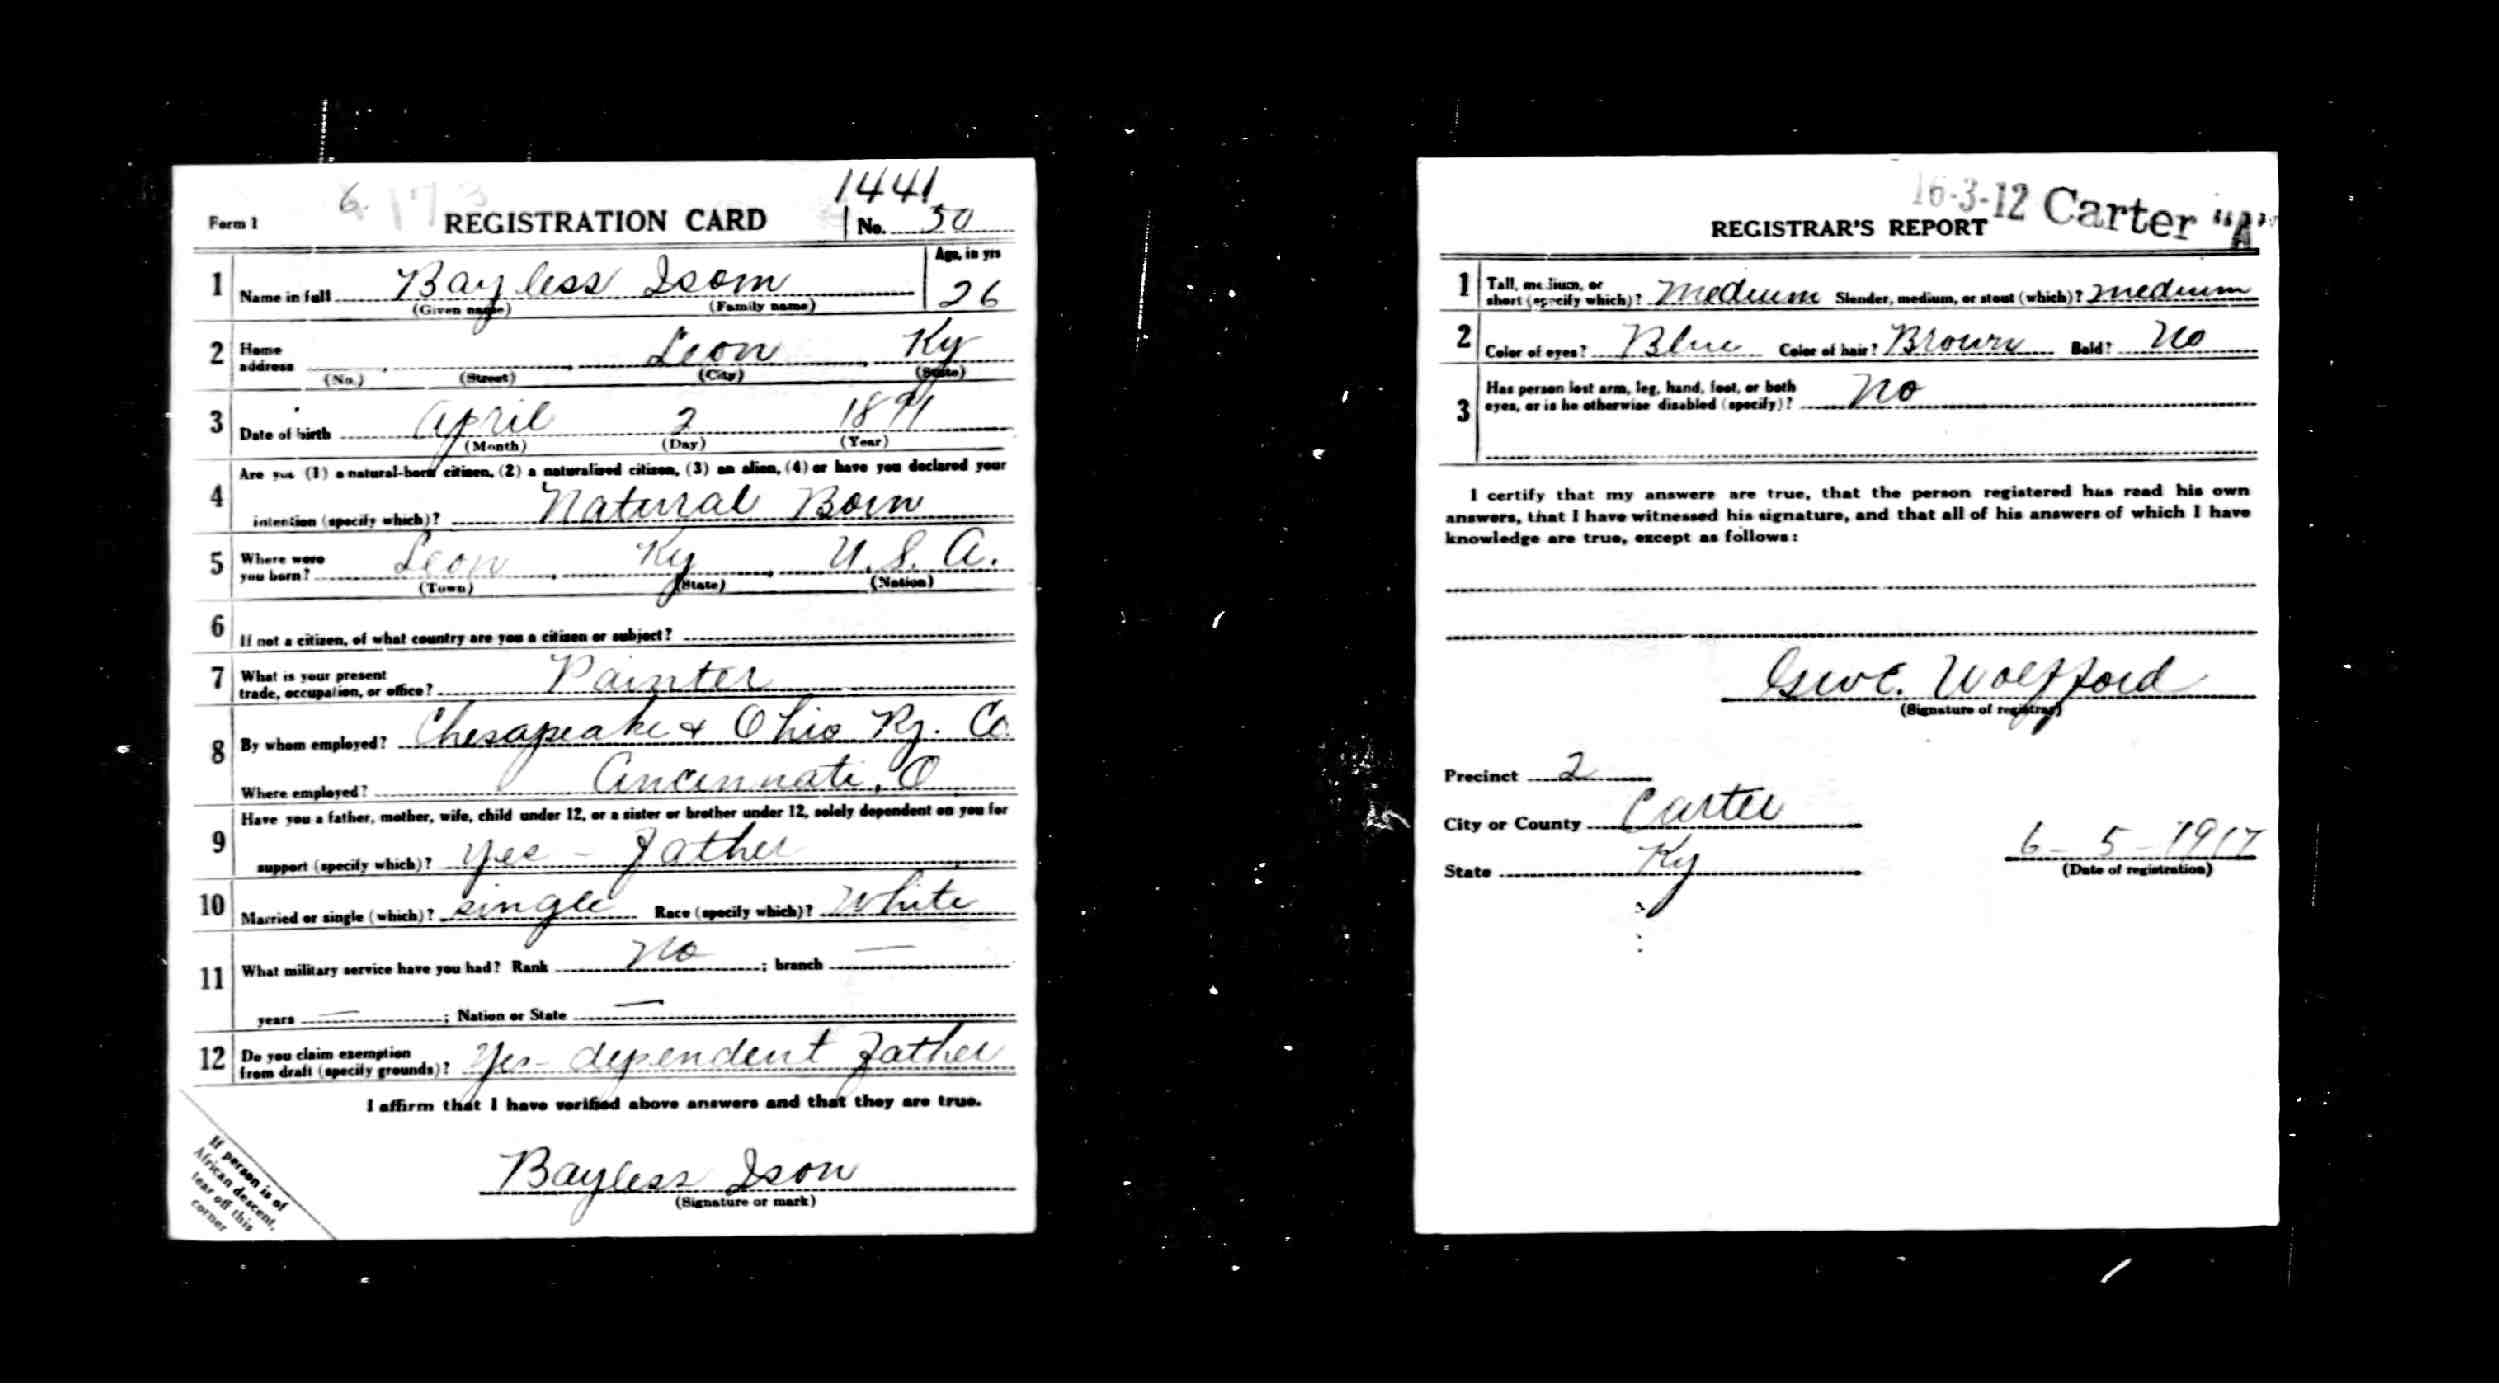 1441
6.
173
Form 1 REGISTRATION CARD No. 50
1 Name in full Bayless Isom Age, in yrs 26
(Given name) (Family name)
2 Home address Leon, Ky
(No.) (Street) (City) (State)
3 Date of birth April 2 1891
(Month) (Day) (Year)
4 Are you (1) a natural-born citizen, (2) a naturalized citizen, (3) an alien, (4) or have you declared your
intention (specify which)? Natural Born
5 Where were you born? Leon, Ky, U.S.A.
(Town) (State) (Nation)
6 If not a citizen, of what country are you a citizen or subject?
7 What is your present trade, occupation, or office? Painter
8 By whom employed? Chesapeake & Ohio Ry. Co.
Where employed? Cincinnati, O
9 Have you a father, mother, wife, child under 12, or a sister or brother under 12, solely dependent on you for
support (specify which)? Yes - Father
10 Married or single (which)? single Race (specify which)? White
11 What military service have you had? Rank No ; branch —
years — ; Nation or State —
12 Do you claim exemption from draft (specify grounds)? Yes - dependent Father
I affirm that I have verified above answers and that they are true.
Bayless Ison
(Signature or mark)
If person is of
African descent,
tear off this
corner
16-3-12 Carter "A"
REGISTRAR'S REPORT
1 Tall, medium, or short (specify which)? Medium Slender, medium, or stout (which)? medium
2 Color of eyes? Blue Color of hair? Brown Bald? No
3 Has person lost arm, leg, hand, foot, or both
eyes, or is he otherwise disabled (specify)? No
I certify that my answers are true, that the person registered has read his own
answers, that I have witnessed his signature, and that all of his answers of which I have
knowledge are true, except as follows:
Wolfford
(Signature of registrar)
Precinct 2
City or County Carter
State Ky
6-5-1917
(Date of registration)